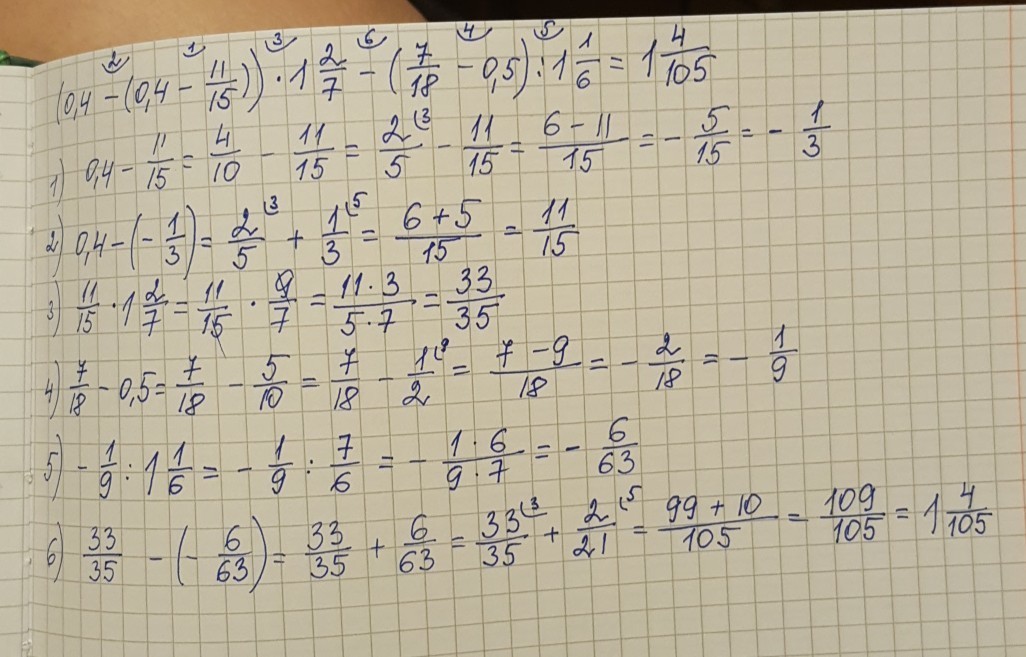 (0,4 - (0,4 - 11/15)) · 1 2/7 - (7/18 - 0,5) : 1 1/6 = 1 4/105
1) 0,4 - 11/15 = 4/10 - 11/15 = 2/5 (3 - 11/15 = 6 - 11/15 = - 5/15 = - 1/3
2) 0,4 - (- 1/3) = 2/5 (3 + 1/3 (5 = 6 + 5/15 = 11/15
3) 11/15 · 1 2/7 = 11/15 · 9/7 = 11 · 3/5 · 7 = 33/35
4) 7/18 - 0,5 = 7/18 - 5/10 = 7/18 - 1/2 (9 = 7 - 9/18 = - 2/18 = - 1/9
5) - 1/9 : 1 1/6 = - 1/9 : 7/6 = - 1 · 6/9 · 7 = - 6/63
6) 33/35 - (- 6/63) = 33/35 + 6/63 = 33/35 (3 + 2/21 (5 = 99 + 10/105 = 109/105 = 1 4/105